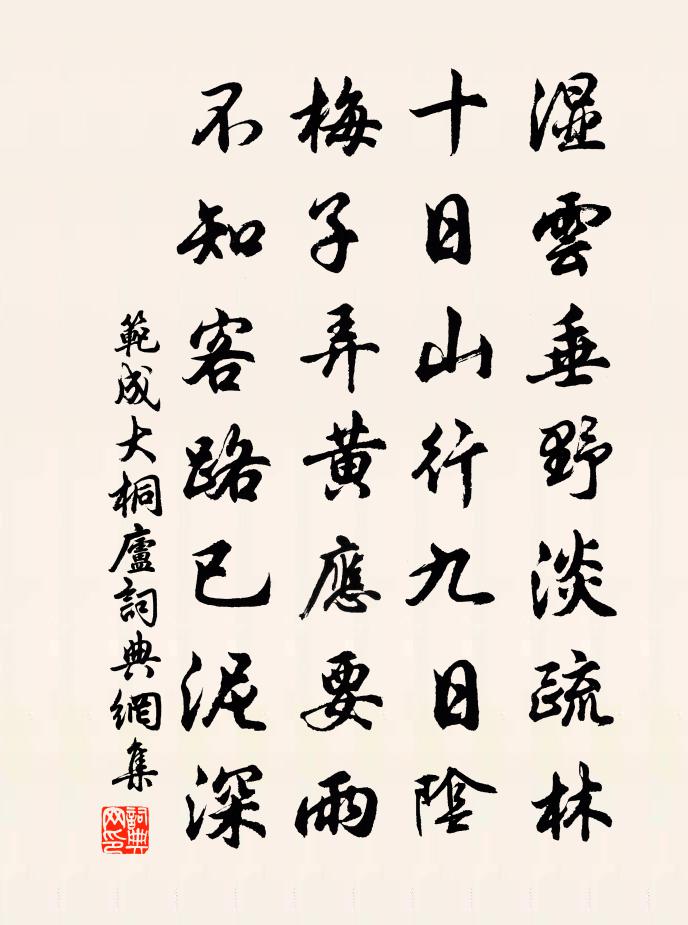 濕雲垂野淡疏林
十日山行九日陰
梅子弄黃應要雨
不知客路已泥深
範成大桐廬詞典網集
詞典網印